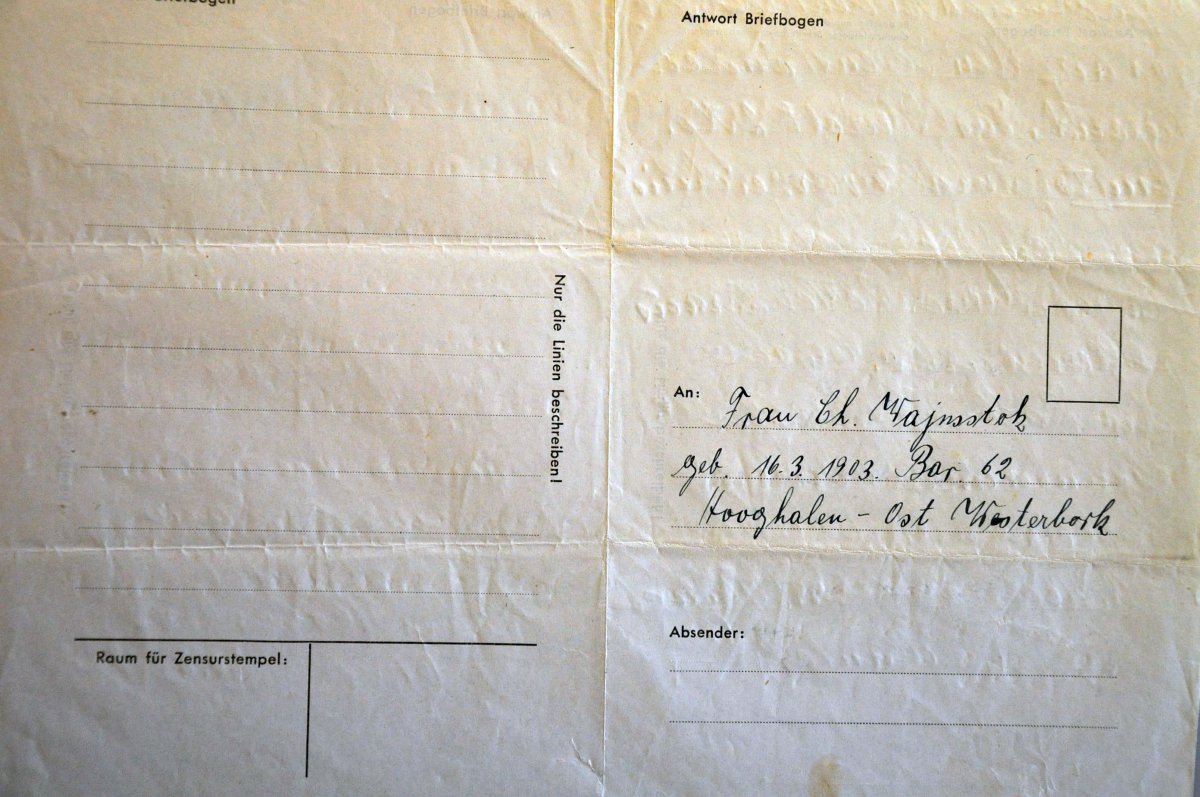 Briefbogen
Nur die Linien beschreiben!
Raum für Zensurstempel:
Antwort Briefbogen
An: Frau Ch. Wajnsstok
geb. 16.3.1903. Bar. 62
Hooghalen - Ost Westerbork
Absender: